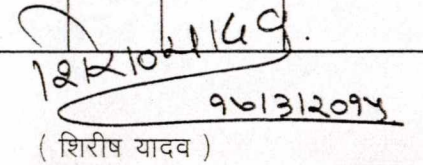 १७|३|२०१५
( शिरीष यादव )